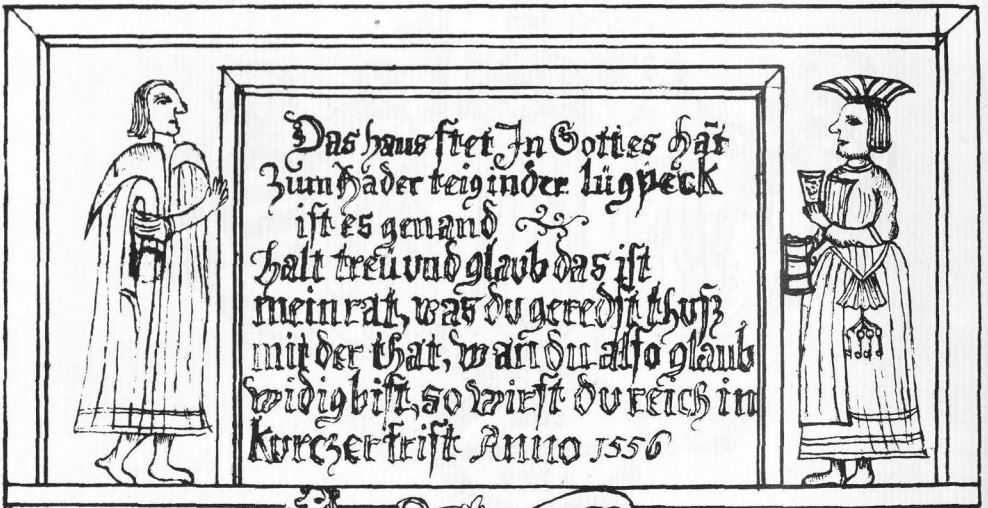 Das haus stet In Gottes hāt
Zum Hader teig in der lügpeck
ist es genand
halt treu vnd glavb das ist
mein rat, was du geredst thusz
mit der that, wan du also glaub
widig bist, so wirst du reich in
kurczer frist Anno 1556